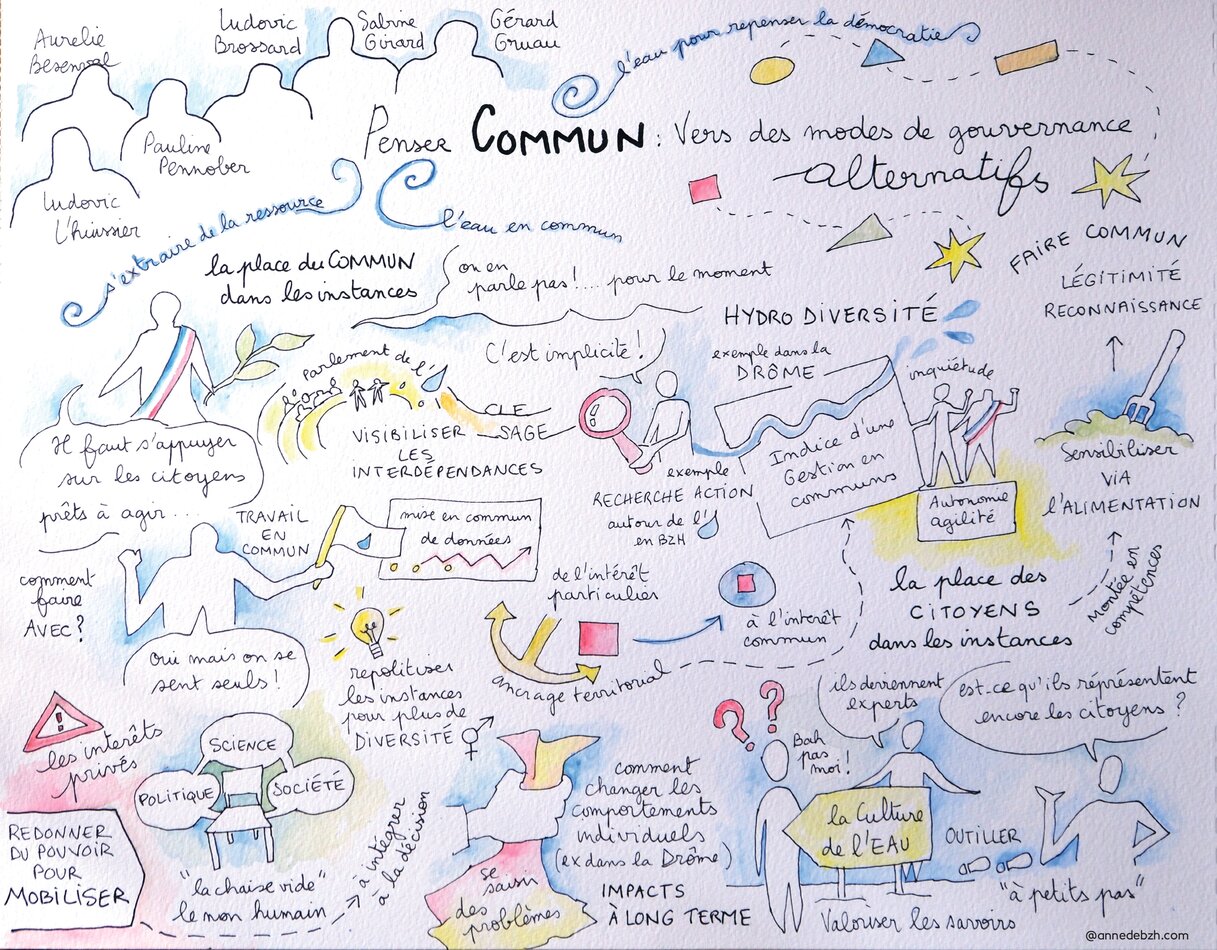 Aurelie
Besenval
Ludovic
Brossard
Sabine
Girard
Gérard
Gruau
Pauline
Pennober
Ludovic
L'huissier
l'eau pour repenser la démocratie
Penser COMMUN : Vers des modes de gouvernance
alternatifs
s'extraire de la ressource
l'eau en commun
la place du COMMUN
dans les instances
on en
parle pas !... pour le moment
FAIRE COMMUN
LÉGITIMITÉ
RECONNAISSANCE
HYDRO DIVERSITÉ
C'est implicite !
exemple dans la
DRÔME
inquiétude
Parlement de l'
CLE
SAGE
VISIBILISER
LES
INTERDÉPENDANCES
Il faut s'appuyer
sur les citoyens
prêts à agir...
exemple
RECHERCHE ACTION
autour de l'
en BZH
Indice d'une
Gestion en
communs
Autonomie
agilité
Sensibiliser
VIA
l'ALIMENTATION
TRAVAIL
EN
COMMUN
mise en commun
de données
comment
faire
AVEC ?
Oui mais on se
sent seuls !
de l'intérêt
particulier
à l'intérêt
commun
la place des
CITOYENS
dans les instances
Montée en
compétences
repolitiser
les instances
pour plus de
DIVERSITÉ
ancrage territorial
ils deviennent
experts
est-ce qu'ils répresentent
encore les citoyens ?
les interêts
privés
SCIENCE
POLITIQUE
SOCIÉTÉ
REDONNER
DU POUVOIR
POUR
MOBILISER
"la chaise vide"
le non humain
à intégrer
à la décision
comment
changer les
comportements
individuels
(ex dans la Drôme)
IMPACTS
À LONG TERME
se
saisir
des
problèmes
Bah
pas
moi !
la Culture
de l'EAU
OUTILLER
"à petits pas"
Valoriser les savoirs
@annedebzh.com